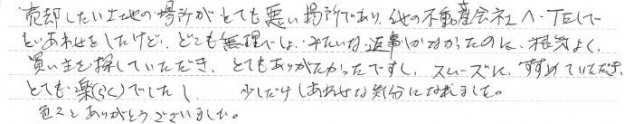 売却したい土地の場所がとても悪い場所であり、他の不動産会社へTELして
といあわせをしたけど、どこも無理でしょ、みたいな返事しかなかったのに、根気よく、
買い主を探していただき、とてもありがたかったですし、スムーズに、すすめていただき、
とても楽(らく)でしたし、少しだけしあわせな気分になれました。
色々とありがとうございました。